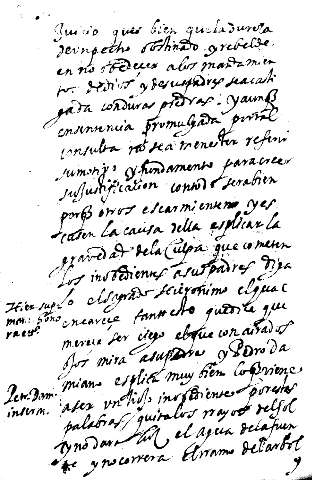 Juicio que es bien que la dureza
de un pecho obstinado y rebelde
en no obedecer a los mandamien
tos de Dios, y de sus padres sea casti
gada con duras piedras; y aunq
en sentencia promulgada por tal
consulta no sea menester referir
su motivo y fundamento para creer
su justificacion con todo sera bien
porq otros escarmienten y es
cusen la causa della esplicar la
gravedad de la Culpa que cometen
los inobedientes a sus padres diga
lo el sagrado s. Geronimo el qual
encareze tanto esto que dice que
merece ser ciego el que con airados
ojos mira a su padre y Pedro Da
miano esplica muy bien lo que viene
a ser un hijo inobediente por estas
palabras quita los rayos del sol
y no dara luz el agua de la fuen
te y no correra el ramo del arbol
Hier. sup
Pet. Dam
in serm.